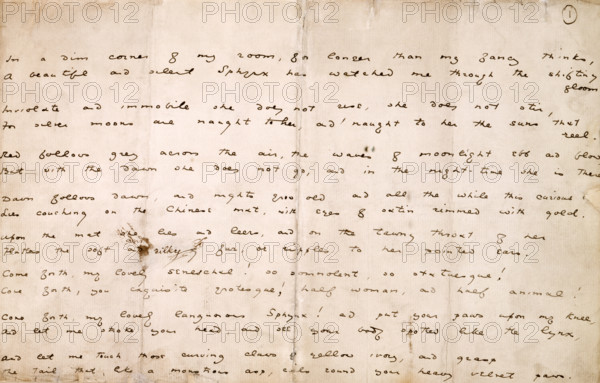 1
In a dim corner of my room, for longer than my fancy thinks,
A beautiful and silent Sphynx has watched me through the shifting
gloom
Inviolate and immobile she does not rise, she does not stir,
For silver moons are naught to her, and naught to her the suns that
reel.
Red follows grey across the air, the waves of moonlight ebb and flow
But with the dawn she does not go, and in the night-time she is there
Dawn follows dawn, and nights grow old and all the while this curious
Lies couching on the Chinese mat, with eyes of satin rimmed with gold.
Upon the mat she lies and leers, and on the tawny throat of her
Flutters the soft and silky fur or ripples to her pointed ears.
Come forth, my lovely seneschal! so somnolent, so statuesque!
Come forth, you exquisite grotesque! half woman, and half animal!
Come forth, my lovely languorous Sphynx! and put your paws upon my knee,
and let me stroke your head and see your body spotted like the lynx,
and let me touch those curving claws of yellow ivory, and grasp
The tail that like a monstrous asp, coils round your heavy velvet paws.